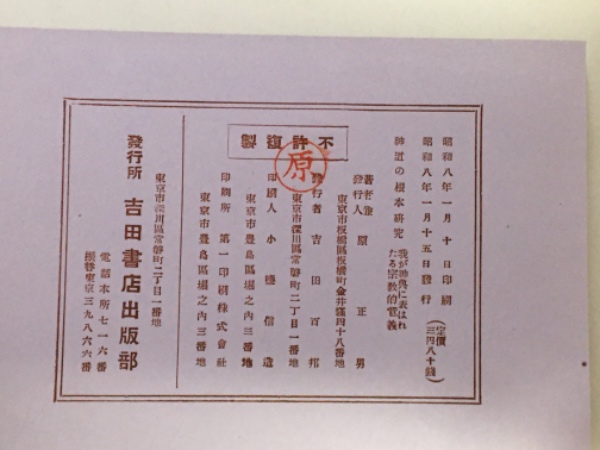 昭和八年一月十日印刷
昭和八年一月十五日發行
(定價
三円八十錢)
神道の根本研究
我が神典に表はれ
たる宗敎的意義
不許複製
原
著者兼
發行人 原正男
東京市板橋區板橋町金井窪四十八番地
發行者 吉田百邦
東京市深川區常磐町二丁目一番地
印刷人 小 信造
東京市豊島區堀之內三番地
印刷所 第一印刷株式會社
東京市豊島區堀之內三番地
東京市深川區常磐町二丁目一番地
發行所 吉田書店出版部
電話本所七一六番
振替東京三九八六六番